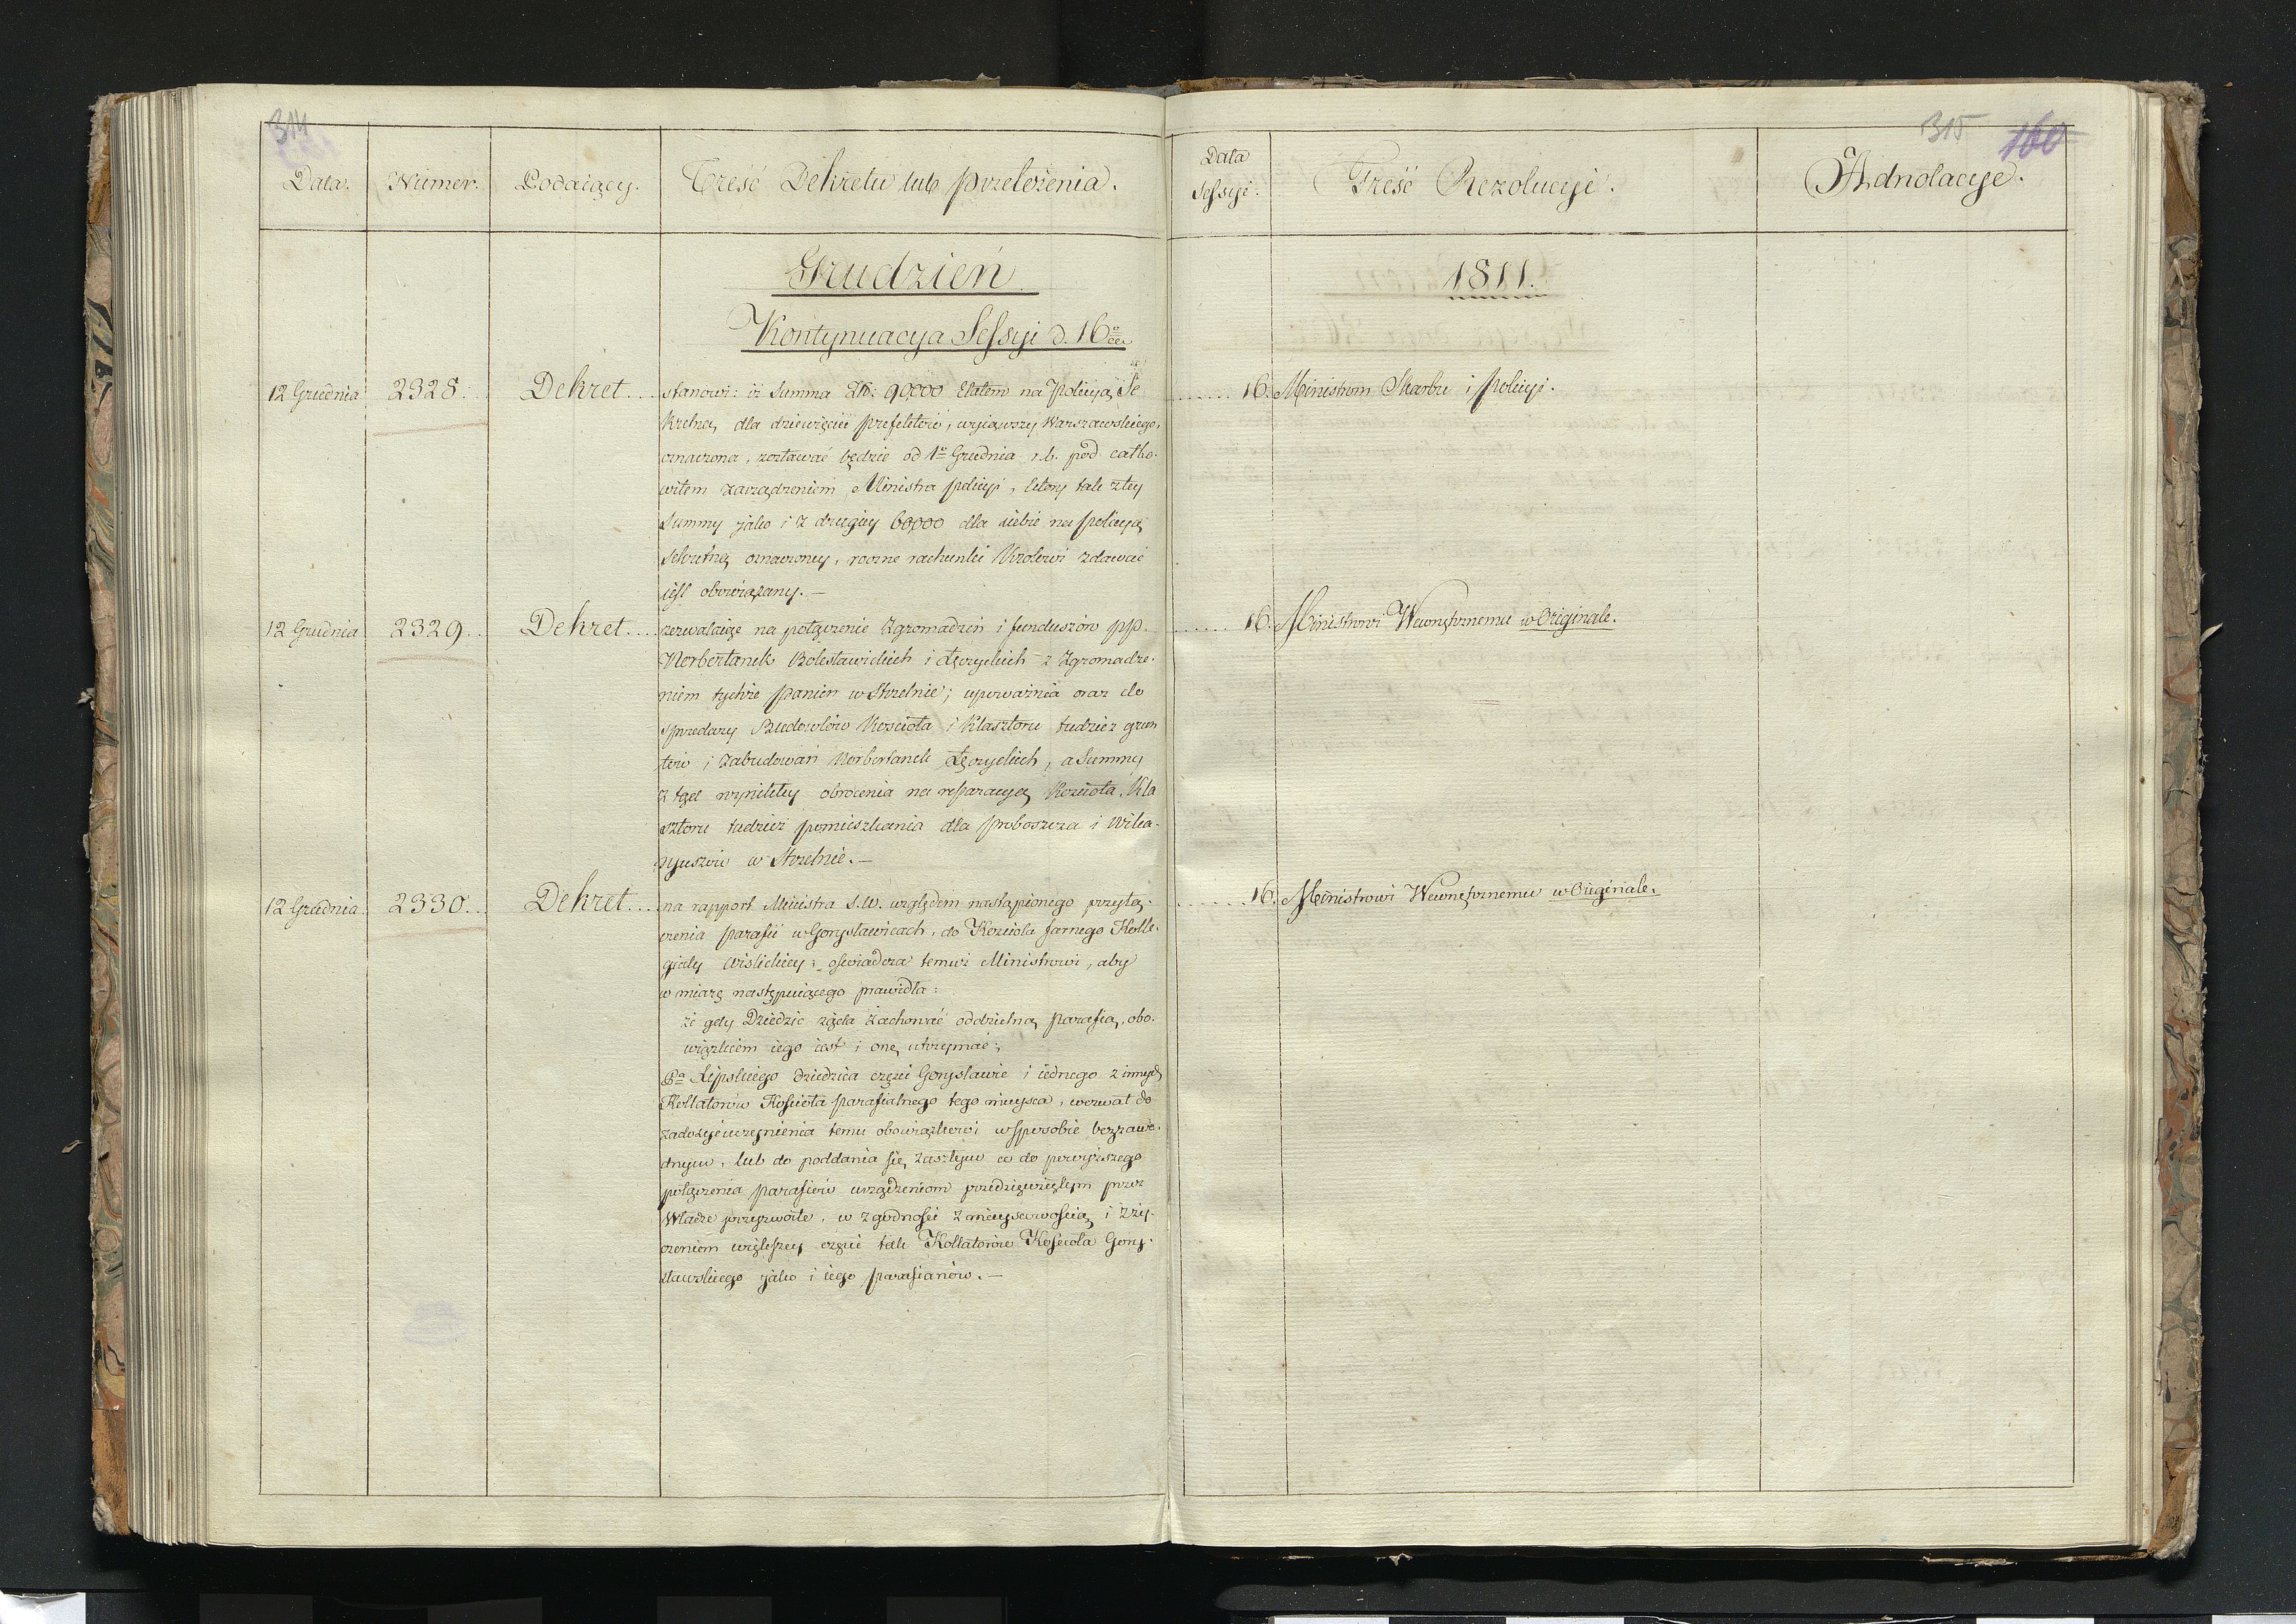 314
Data.
Numer.
Podaiący.
Treść Dekretu lub przełożenia.
Grudzień
Kontynuacya Sessyi d. 16
12 Grudnia
2328.
Dekret....
stanowi: iż Summa Złt: 90,000 Etatem na Policyą Se
kretną dla dziewięciu prefektów, wyiąwszy Warszawskiego,
oznaczona, zostawać będzie od 1º Grudnia r.b. pod całko-
witem zarządzeniem Ministra policyi, który tak z tey
Summy jako i z drugiey 60,000 dla siebie na policyą
sekretną oznaczoney, roczne rachunki Królowi zdawać
iest obowiązany.—
12 Grudnia
2329..
Dekret....
zezwalaiąc na połączenie Zgromadzeń i funduszów pp.
Norbertanek Bolesławickich i Łęczyckich z Zgromadze-
niem tychże panien w Strzelnie; upoważnia oraz do
sprzedaży Budowlów Kościoła i Klasztoru tudzież grun
tów i Zabudowań Norbertanek Łęczyckich, a Summy
z tąd wynikłey obrócenia na reparacyą Kościoła, Kla
sztoru tudzież pomieszkania dla proboszcza i Wika-
ryuszów w Strzelnie.—
12 Grudnia
2330...
Dekret....
na rapport Ministra S.W. względem nastąpionego przyłą-
czenia parafii w Gorysławicach, do Kościoła farnego Kolle-
giaty Wislickiey; oświadcza temuż Ministrowi, aby
w miarę następuiącego prawidła:
że gdy Dziedzic żąda zachować oddzielną parafią, obo-
wiązkiem iego iest i onę utrzymać;
Pa Lipskiego dziedzica części Gorysławic i iednego z innych
Kollatorów Kościoła parafialnego tego mieysca, wezwał do
zadosyć uczynienia temu obowiązkowi w sposobie bezzawo-
dnym, lub do poddania się zaszłym co do powyższego
połączenia parafiów urządzeniom przedsięwziętym przez
Władze przyzwoite, w zgodności z mieyscowością i z ży-
czeniem większey części tak Kollatorów Kościoła Gory-
sławskiego jako i iego parafianów.—
315 160
Data Sessyi.
Treść Rezolucyi.
Adnotacye.
1811.
......16. Ministrom Skarbu i policyi.
......16. Ministrowi Wewnętrznemu w Originale.
......16. Ministrowi Wewnętrznemu w Originale.